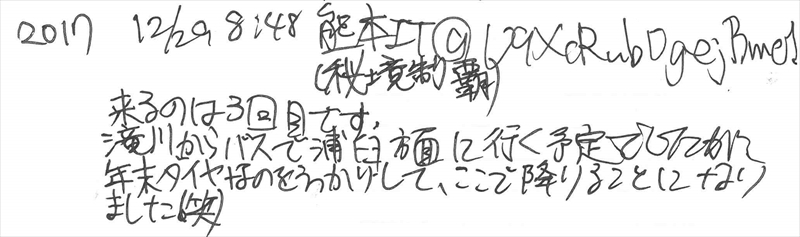 2017 12/29 8:48 熊本IT@
(秘境制覇)
来るのは3回目です。
滝川からバスで浦臼方面に行く予定でしたが
年末ダイヤなのをうっかりして、ここで降りることになり
ました(笑)